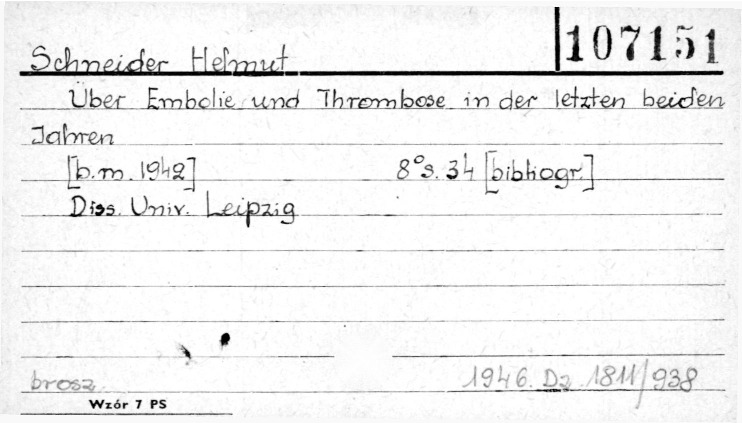 107151
Schneider Helmut
Über Embolie und Thrombose in der letzten beiden
Jahren
[b.m. 1942] 8° s. 34 [bibliogr.]
Diss. Univ. Leipzig
brosz. 1946. Dz. 1811/938
Wzór 7 PS